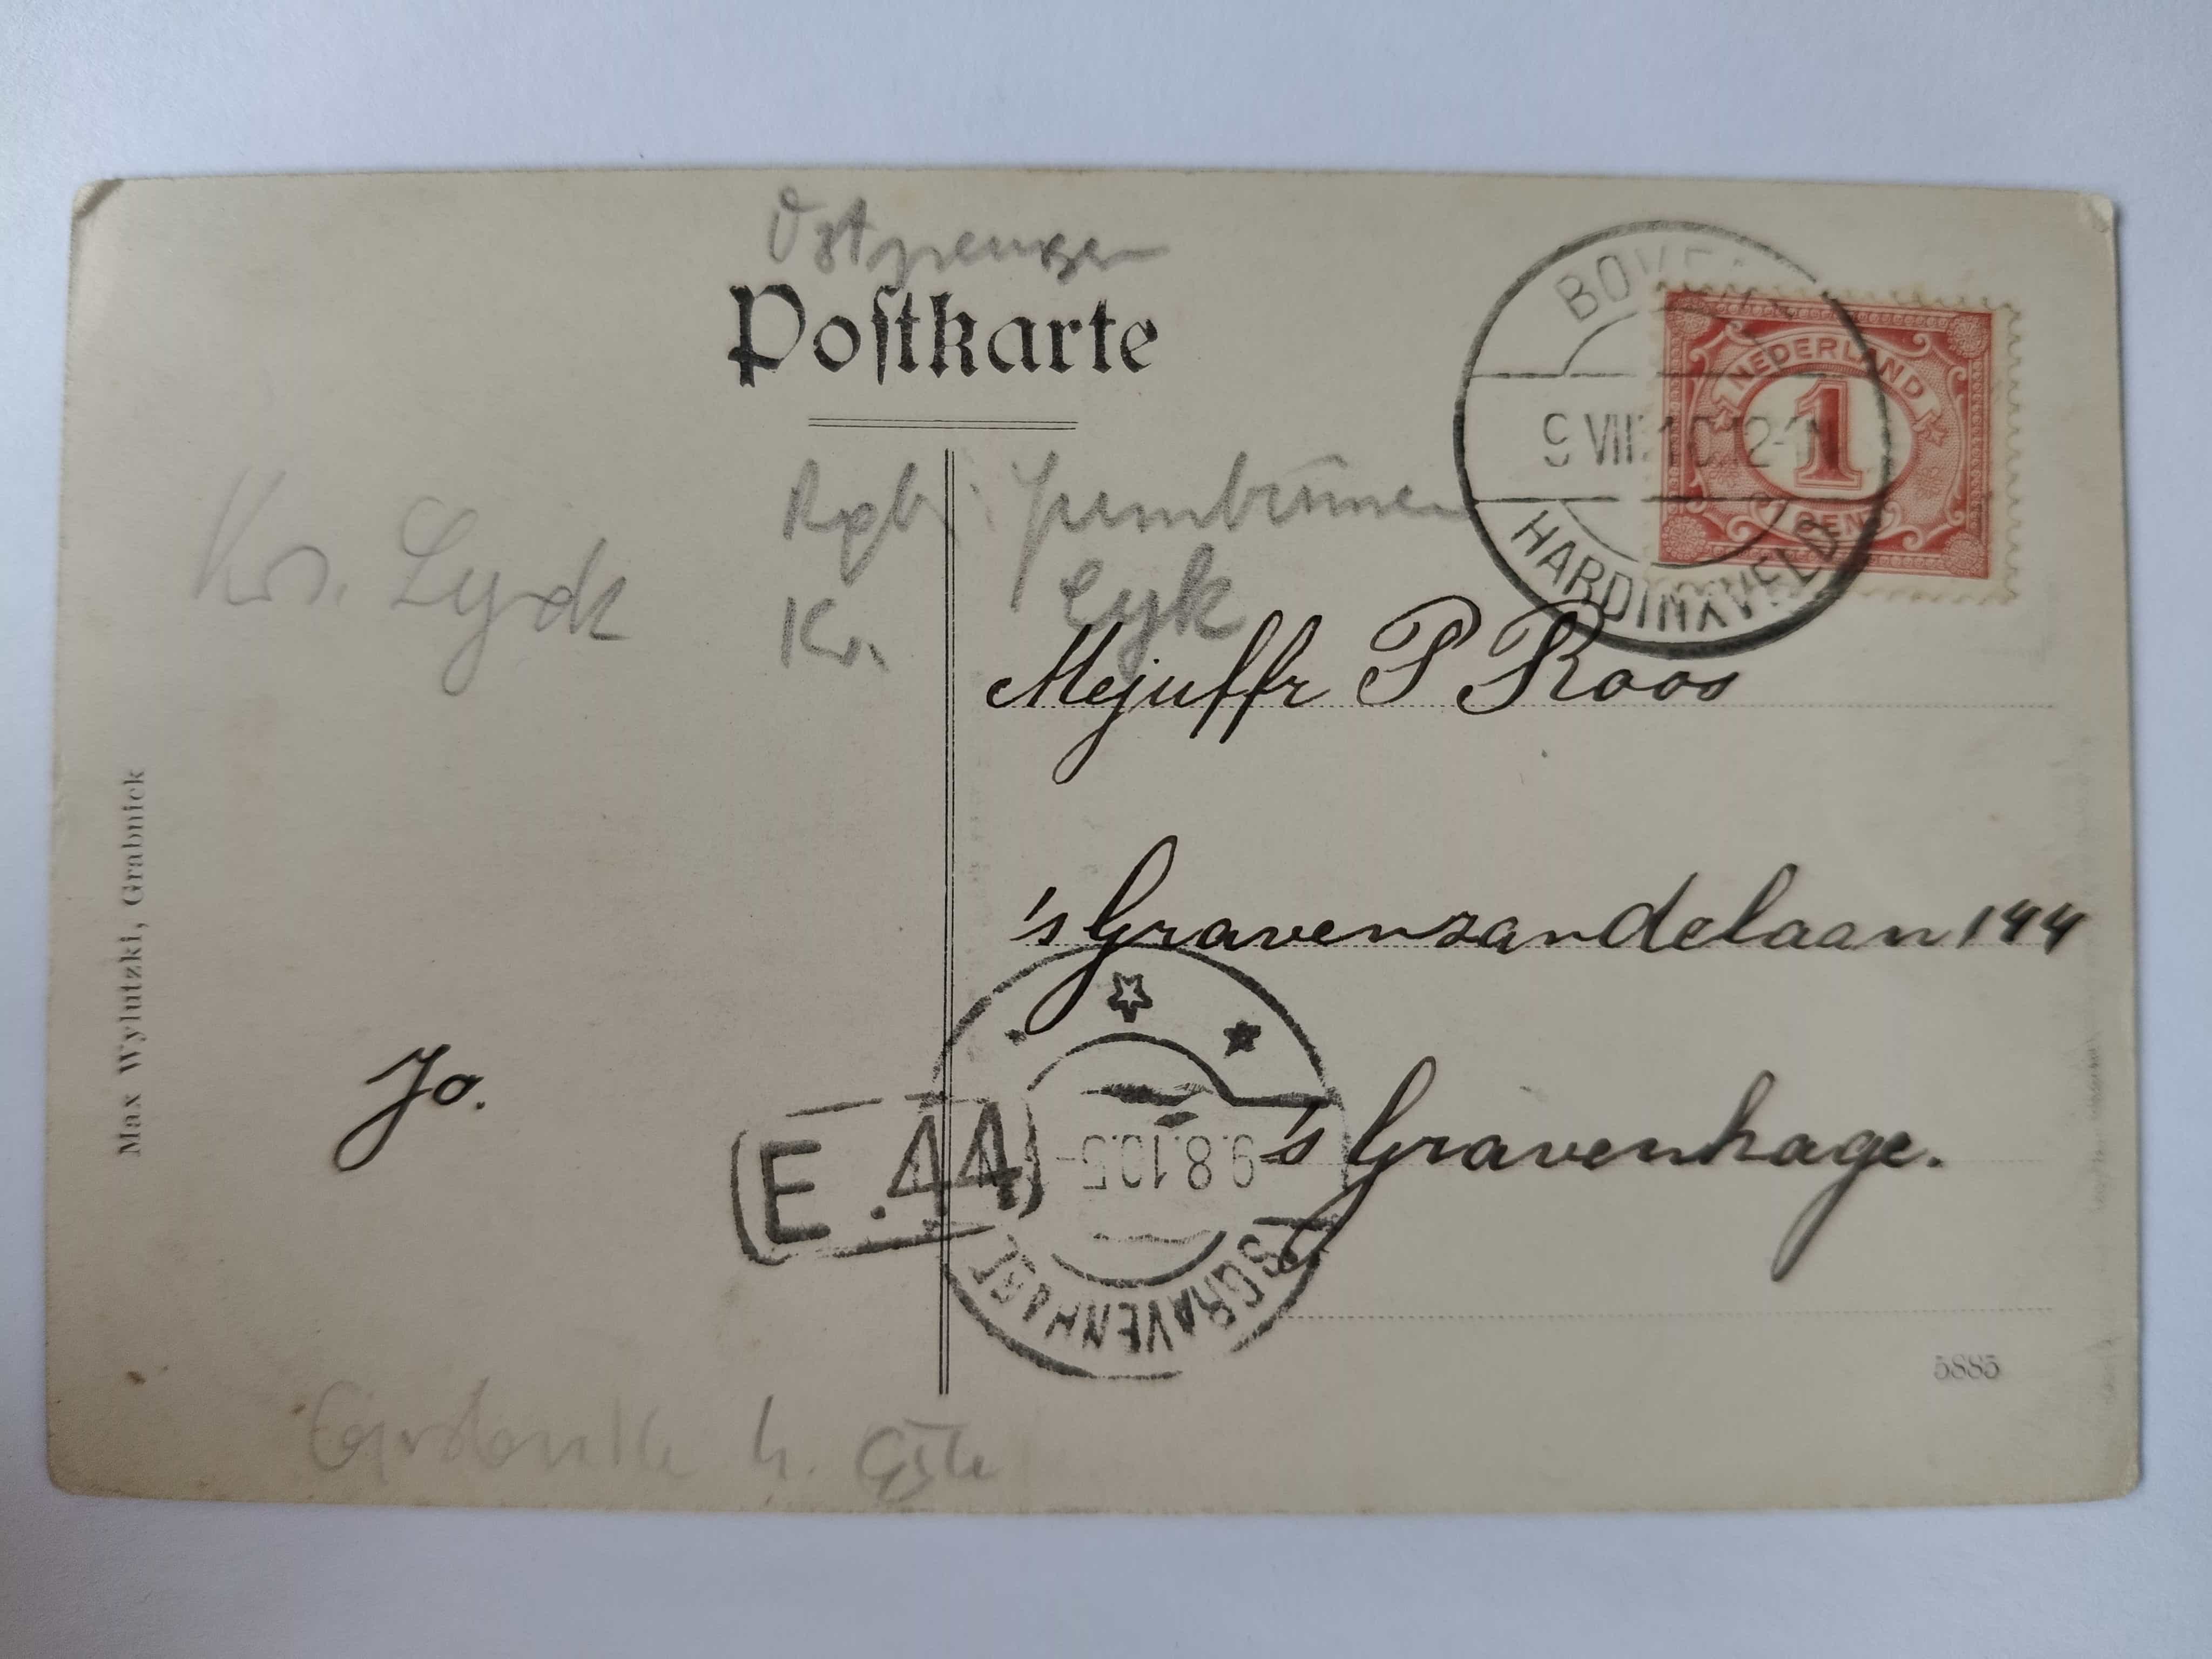 Ostpreußen
Postkarte
NEDERLAND
1
CENT
9 VIII 10 12-1N
HARDINXVELD
Rgb. Gumbinnen
Kr. Lyk
Kr. Lyck
Mejuffr P Roos
's Gravenzandelaan 144
's Gravenhage.
Jo.
E.44
9.8.10.5-
'S GRAVENHAGE
Max Wylutzki, Grabnick
5885